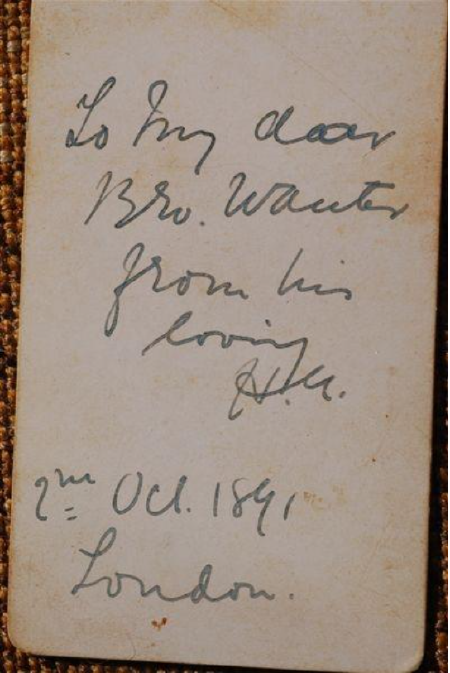 To My dear
Bro. Wauter
from his
loving
H.U.
2nd Oct. 1891
London.